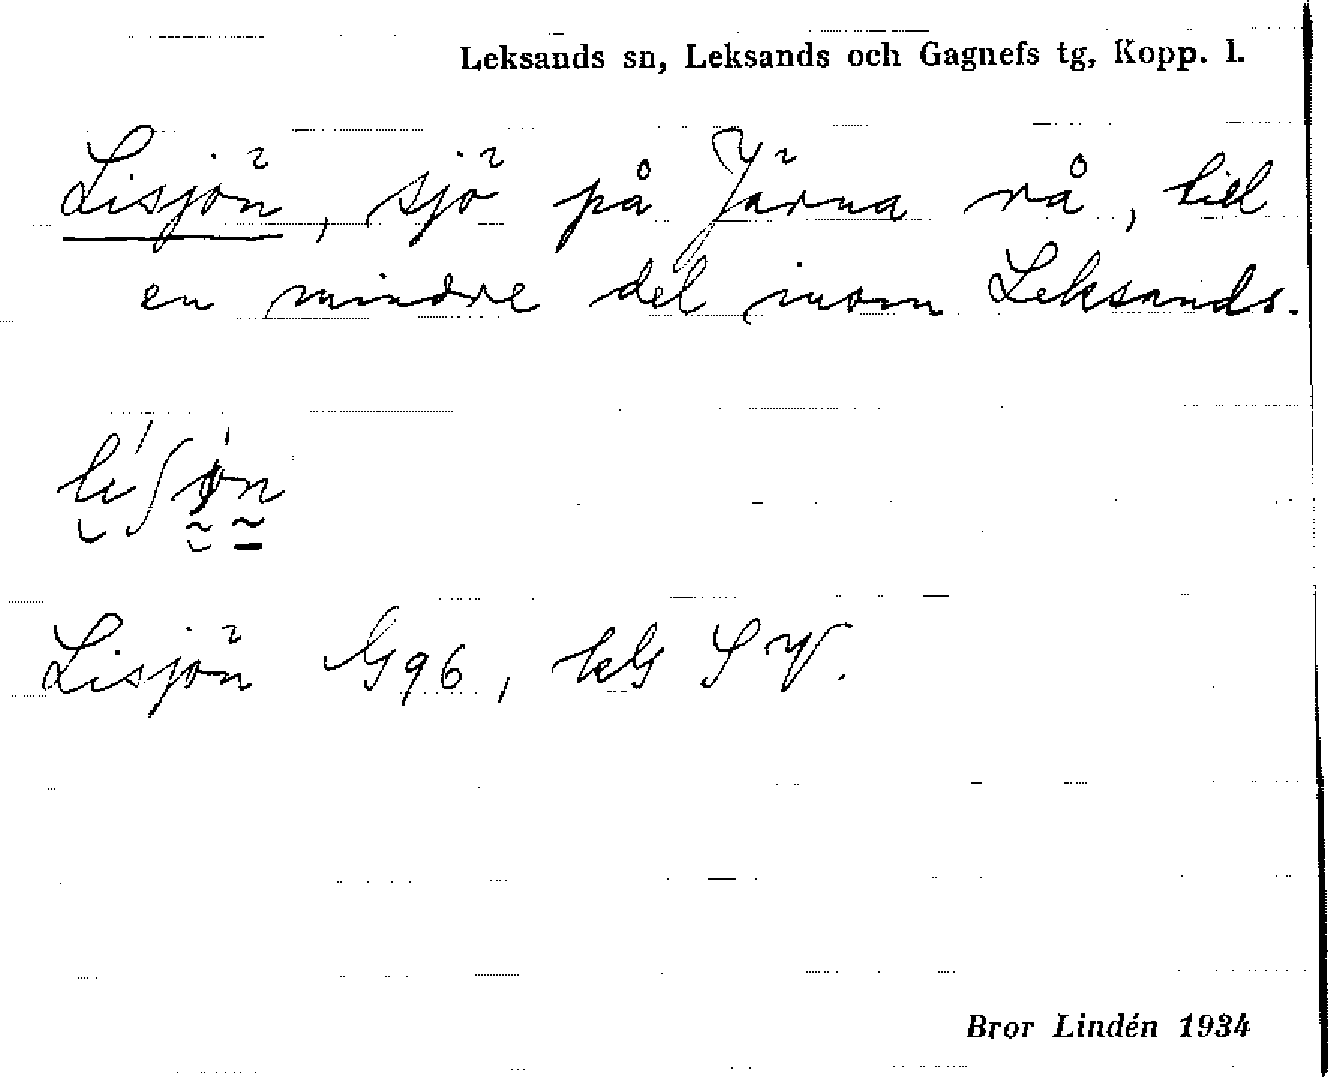 Leksands sn, Leksands och Gagnefs tg, Kopp. l.
Lisjön, sjö på Järna rå, till
en mindre del inom Leksands.
Lisjön G96, kbl SV.
Bror Lindén 1934